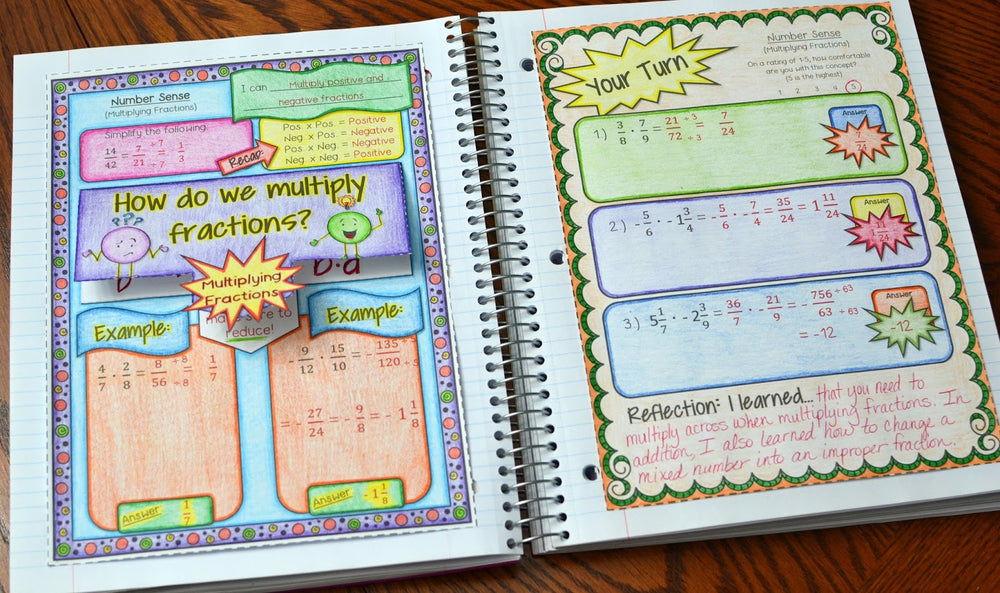 Number Sense
(Multiplying Fractions)
I can Multiply positive and
negative fractions
Simplify the following:
14/42 = 7/21 ÷ 7/÷ 7 = 1/3
Recap:
Pos. x Pos. = Positive
Neg. x Pos. = Negative
Pos. x Neg. = Negative
Neg. x Neg. = Positive
How do we multiply
fractions?
???
b
b·d
Multiplying
Fractions
make sure to
reduce!
Example:
4/7 · 2/8 = 8/56 ÷8/÷8 = 1/7
Answer 1/7
Example:
-9/12 · 15/10 = -135/120
= -27/24 = -9/8 = -1 1/8
Answer -1 1/8
Your Turn
Number Sense
(Multiplying Fractions)
On a rating of 1-5, how comfortable
are you with this concept?
(5 is the highest)
1 2 3 4 5
1.) 3/8 · 7/9 = 21/72 ÷3/÷3 = 7/24
Answer
7/24
2.) -5/6 · -1 3/4 = -5/6 · -7/4 = 35/24 = 1 11/24
Answer
1 11/24
3.) 5 1/7 · -2 3/9 = 36/7 · -21/9 = -756/63 ÷63/÷63
= -12
Answer
-12
Reflection: I learned... that you need to
multiply across when multiplying fractions. In
addition, I also learned how to change a
mixed number into an improper fraction.